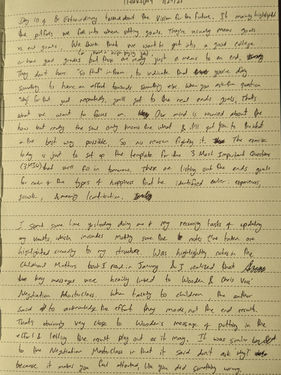 Wednesday 1/27/21
Day 10 of Be Extraordinary talked about the Vision for the Future. It mainly highlighted
the pitfalls we fall into when setting goals. They're usually means goals
vs end goals. We think that we want to get into a good college
or have good grades but those are really just a means to an end.
They don't have "so that" in them, to indicate that you're doing
something to have an effect towards something else. When you ask that question
"Why" for that and repeatedly, you'll get to the real ends goals, that's
what we want to focus on. Our mind is worried about the
how but really the soul only knows the what & it'll get you to the what
in the best way possible. So no reason fighting it. The exercise
today is just to set up the template for the 3 Most Important Questions
(3MIQ) that we'll do in tomorrow. There are listing out the ends goals
for each of the types of happiness that he identified earlier: experiences,
growth, & contribution.
I spent some time yesterday doing one of my recurring tasks of updating
my vaults, which includes making sure the notes I've taken are
highlighted correctly to my structure. Was highlighting notes in the
book I read in January & I realized that
key messages were heavily linked to Wooden & Chris Voss'
Negotiation Masterclass. When talking to children the author
said to acknowledge the effort they made, not the end result.
That's obviously very close to Wooden's message of putting in the
effort & letting the result play out as it may. It was similar
to the Negotiation Masterclass in that it said don't ask why?
because it makes you feel attacked, like you did something wrong.